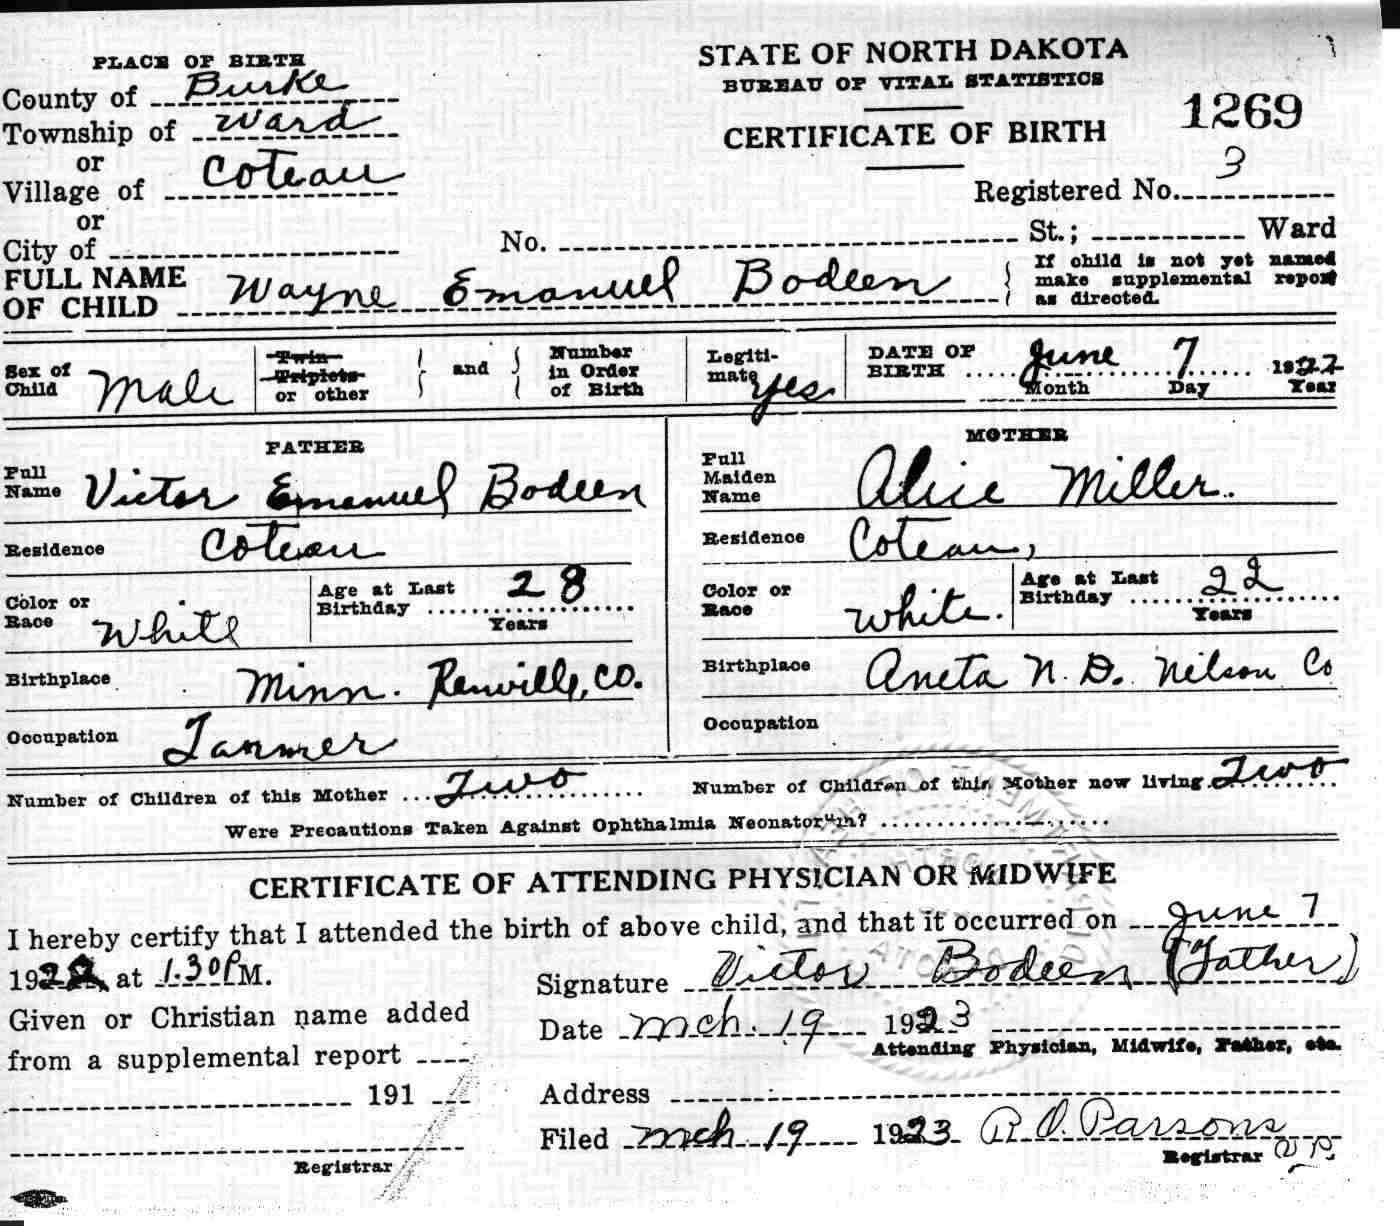 PLACE OF BIRTH
County of Burke
Township of Ward
or
Village of Coteau
or
City of
STATE OF NORTH DAKOTA
BUREAU OF VITAL STATISTICS
CERTIFICATE OF BIRTH
1269
Registered No. 3
No. St.; Ward
FULL NAME
OF CHILD Wayne Emanuel Bodeen
If child is not yet named
make supplemental report
as directed.
Sex of
Child Male
Twin
Triplets
or other
and
Number
in Order
of Birth
Legiti-
mate yes
DATE OF
BIRTH June 7 1922
Month Day Year
FATHER
Full
Name Victor Emanuel Bodeen
Residence Coteau
Color or
Race White
Age at Last
Birthday 28
Years
Birthplace Minn. Renville, Co.
Occupation Farmer
MOTHER
Full
Maiden
Name Alice Miller.
Residence Coteau,
Color or
Race White.
Age at Last
Birthday 22
Years
Birthplace Aneta N. D. Nelson Co
Occupation
Number of Children of this Mother Two
Number of Children of this Mother now living Two
Were Precautions Taken Against Ophthalmia Neonatorum?
CERTIFICATE OF ATTENDING PHYSICIAN OR MIDWIFE
I hereby certify that I attended the birth of above child, and that it occurred on June 7
1922, at 1.30 P M.
Signature Victor Bodeen (Father)
Given or Christian name added
from a supplemental report
191
Registrar
Date Mch. 19 1923
Attending Physician, Midwife, Father, etc.
Address
Filed Mch 19 1923 R. O. Parsons
Registrar